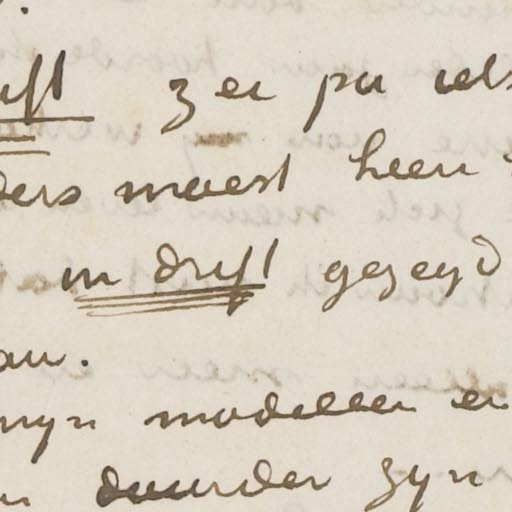 ift zei pa iets
ders moest heen
in drift gezegd
an.
myn modellen en
duurder zyn